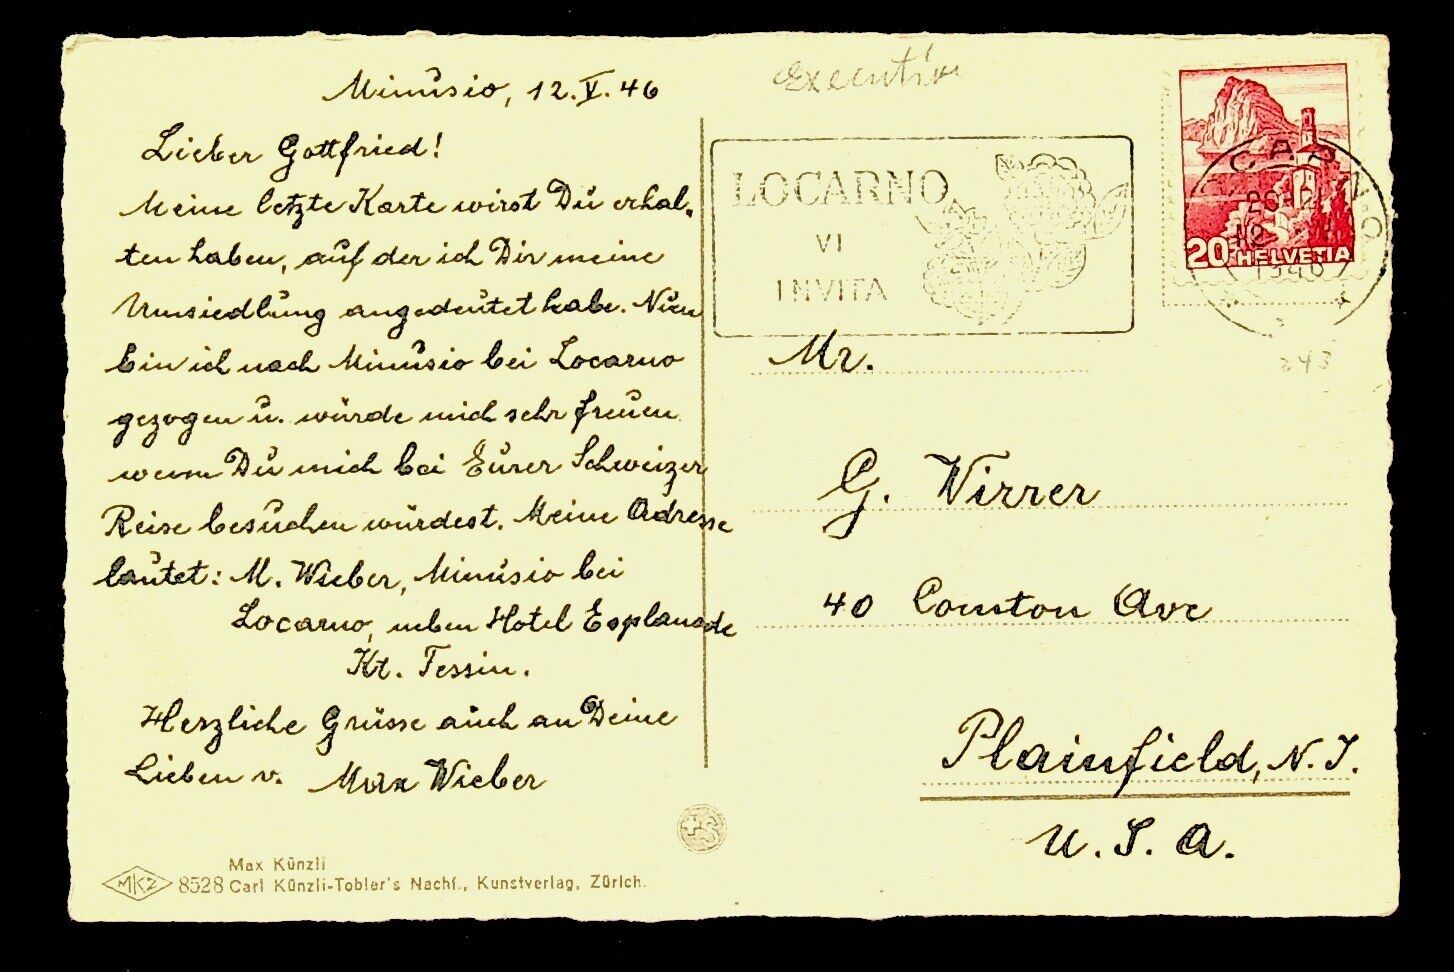 Minusio, 12.V.46
Lieber Gottfried!
Meine letzte Karte wirst Du erhal-
ten haben, auf der ich Dir meine
Umsiedlung angedeutet habe. Nun
bin ich nach Minusio bei Locarno
gezogen u. würde mich sehr freuen
wenn Du mich bei Eurer Schweizer
Reise besuchen würdest. Meine Adresse
lautet: M. Wieber, Minusio bei
Locarno, neben Hotel Esplanade
Kt. Tessin.
Herzliche Grüsse auch an Deine
Lieben v. Max Wieber
MKZ 8528
Max Künzli
Carl Künzli-Tobler's Nachf., Kunstverlag, Zürich.
LOCARNO
VI
INVITA
20 HELVETIA
1946
243
Mr.
G. Wirrer
40 Comston Ave
Plainfield, N.J.
U.S.A.